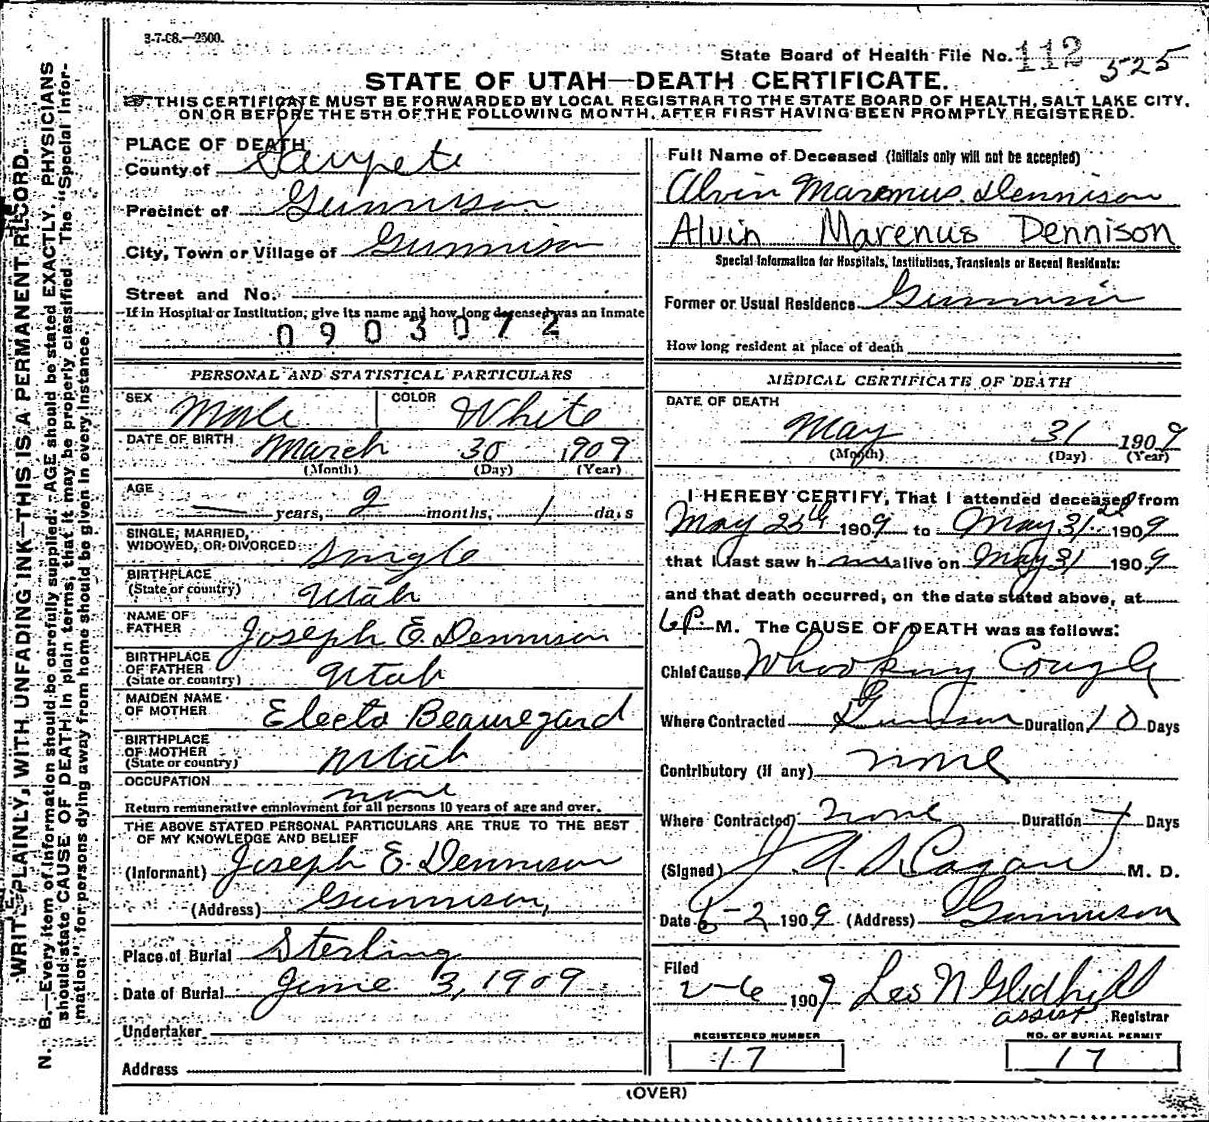 3-7-08.—2500.
State Board of Health File No. 112 525
STATE OF UTAH—DEATH CERTIFICATE.
THIS CERTIFICATE MUST BE FORWARDED BY LOCAL REGISTRAR TO THE STATE BOARD OF HEALTH, SALT LAKE CITY,
ON OR BEFORE THE 5TH OF THE FOLLOWING MONTH, AFTER FIRST HAVING BEEN PROMPTLY REGISTERED.
WRITE PLAINLY, WITH UNFADING INK—THIS IS A PERMANENT RECORD.
N. B.—Every item of information should be carefully supplied. AGE should be stated EXACTLY. PHYSICIANS
should state CAUSE OF DEATH in plain terms, that it may be properly classified. The "Special Infor-
mation," for persons dying away from home should be given in every instance.
PLACE OF DEATH
County of Sanpete
Precinct of Gunnison
City, Town or Village of Gunnison
Street and No.
If in Hospital or Institution, give its name and how long deceased was an inmate
0903072
PERSONAL AND STATISTICAL PARTICULARS
SEX Male COLOR White
DATE OF BIRTH March 30 1909
(Month) (Day) (Year)
AGE — years, 2 months, 1 days
SINGLE, MARRIED,
WIDOWED, OR DIVORCED: Single
BIRTHPLACE
(State or country) Utah
NAME OF
FATHER Joseph E. Dennison
BIRTHPLACE
OF FATHER
(State or country) Utah
MAIDEN NAME
OF MOTHER Electa Beauregard
BIRTHPLACE
OF MOTHER
(State or country) Utah
OCCUPATION none
Return remunerative employment for all persons 10 years of age and over.
THE ABOVE STATED PERSONAL PARTICULARS ARE TRUE TO THE BEST
OF MY KNOWLEDGE AND BELIEF
(Informant) Joseph E. Dennison
(Address) Gunnison,
Place of Burial Sterling
Date of Burial June 3, 1909
Undertaker
Address
Full Name of Deceased (initials only will not be accepted)
Alvin Marenus Dennison
Alvin Marenus Dennison
Special Information for Hospitals, Institutions, Transients or Recent Residents:
Former or Usual Residence Gunnison
How long resident at place of death
MEDICAL CERTIFICATE OF DEATH
DATE OF DEATH
May 31 1909
(Month) (Day) (Year)
I HEREBY CERTIFY, That I attended deceased from
May 25th 1909 to May 31 1909
that I last saw h im alive on May 31 1909
and that death occurred, on the date stated above, at
6 P. M. The CAUSE OF DEATH was as follows:
Chief Cause Whooping Cough
Where Contracted Gunnison Duration 10 Days
Contributory (if any) none
Where Contracted none Duration Days
(Signed) M. D.
Date 6-2 1909 (Address) Gunnison
Filed
2-6 1909 Les N Gledhill
assist Registrar
REGISTERED NUMBER
17
NO. OF BURIAL PERMIT
17
(OVER)